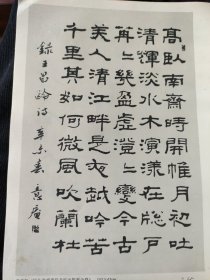 高臥南齋時開帷月初吐
清輝淡水木演漾在牕戶
苒々幾盈虛澄々變今古
美人清江畔是夜越吟苦
千里其如何微風吹蘭杜
錄王昌齡詩辛未春意庵